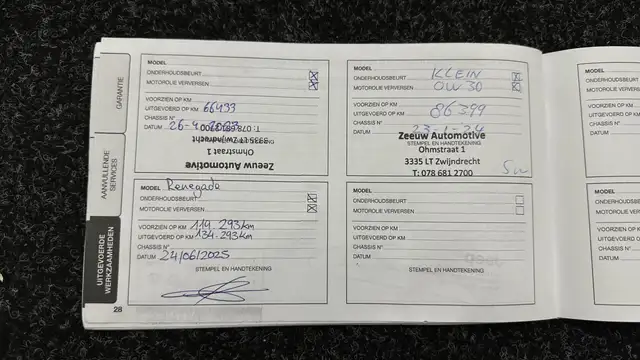 GARANTIE
AANVULLENDE
SERVICES
UITGEVOERDE
WERKZAAMHEDEN
MODEL
ONDERHOUDSBEURT
MOTOROLIE VERVERSEN
VOORZIEN OP KM
UITGEVOERD OP KM 66433
CHASSIS N°
DATUM 26-4-2023
STEMPEL EN HANDTEKENING
Zeeuw Automotive
Ohmstraat 1
3335 LT Zwijndrecht
T: 078 681 2700
MODEL
ONDERHOUDSBEURT KLEIN
MOTOROLIE VERVERSEN OW30
VOORZIEN OP KM
UITGEVOERD OP KM 86399
CHASSIS N°
DATUM 23-1-24
STEMPEL EN HANDTEKENING
Zeeuw Automotive
Ohmstraat 1
3335 LT Zwijndrecht
T: 078 681 2700
MODEL Renegade
ONDERHOUDSBEURT
MOTOROLIE VERVERSEN
VOORZIEN OP KM 119.293km
UITGEVOERD OP KM 134.293km
CHASSIS N°
DATUM 24/06/2025
STEMPEL EN HANDTEKENING
MODEL
ONDERHOUDSBEURT
MOTOROLIE VERVERSEN
VOORZIEN OP KM
UITGEVOERD OP KM
CHASSIS N°
DATUM
STEMPEL EN HANDTEKENING
28
MODEL
ONDERHOUD
MOTOROLIE
VOORZIEN O
UITGEVOERD
CHASSIS N°
DATUM
MODEL
ONDERHOUD
MOTOROLIE
VOORZIEN
UITGEVOERD
CHASSIS N°
DATUM